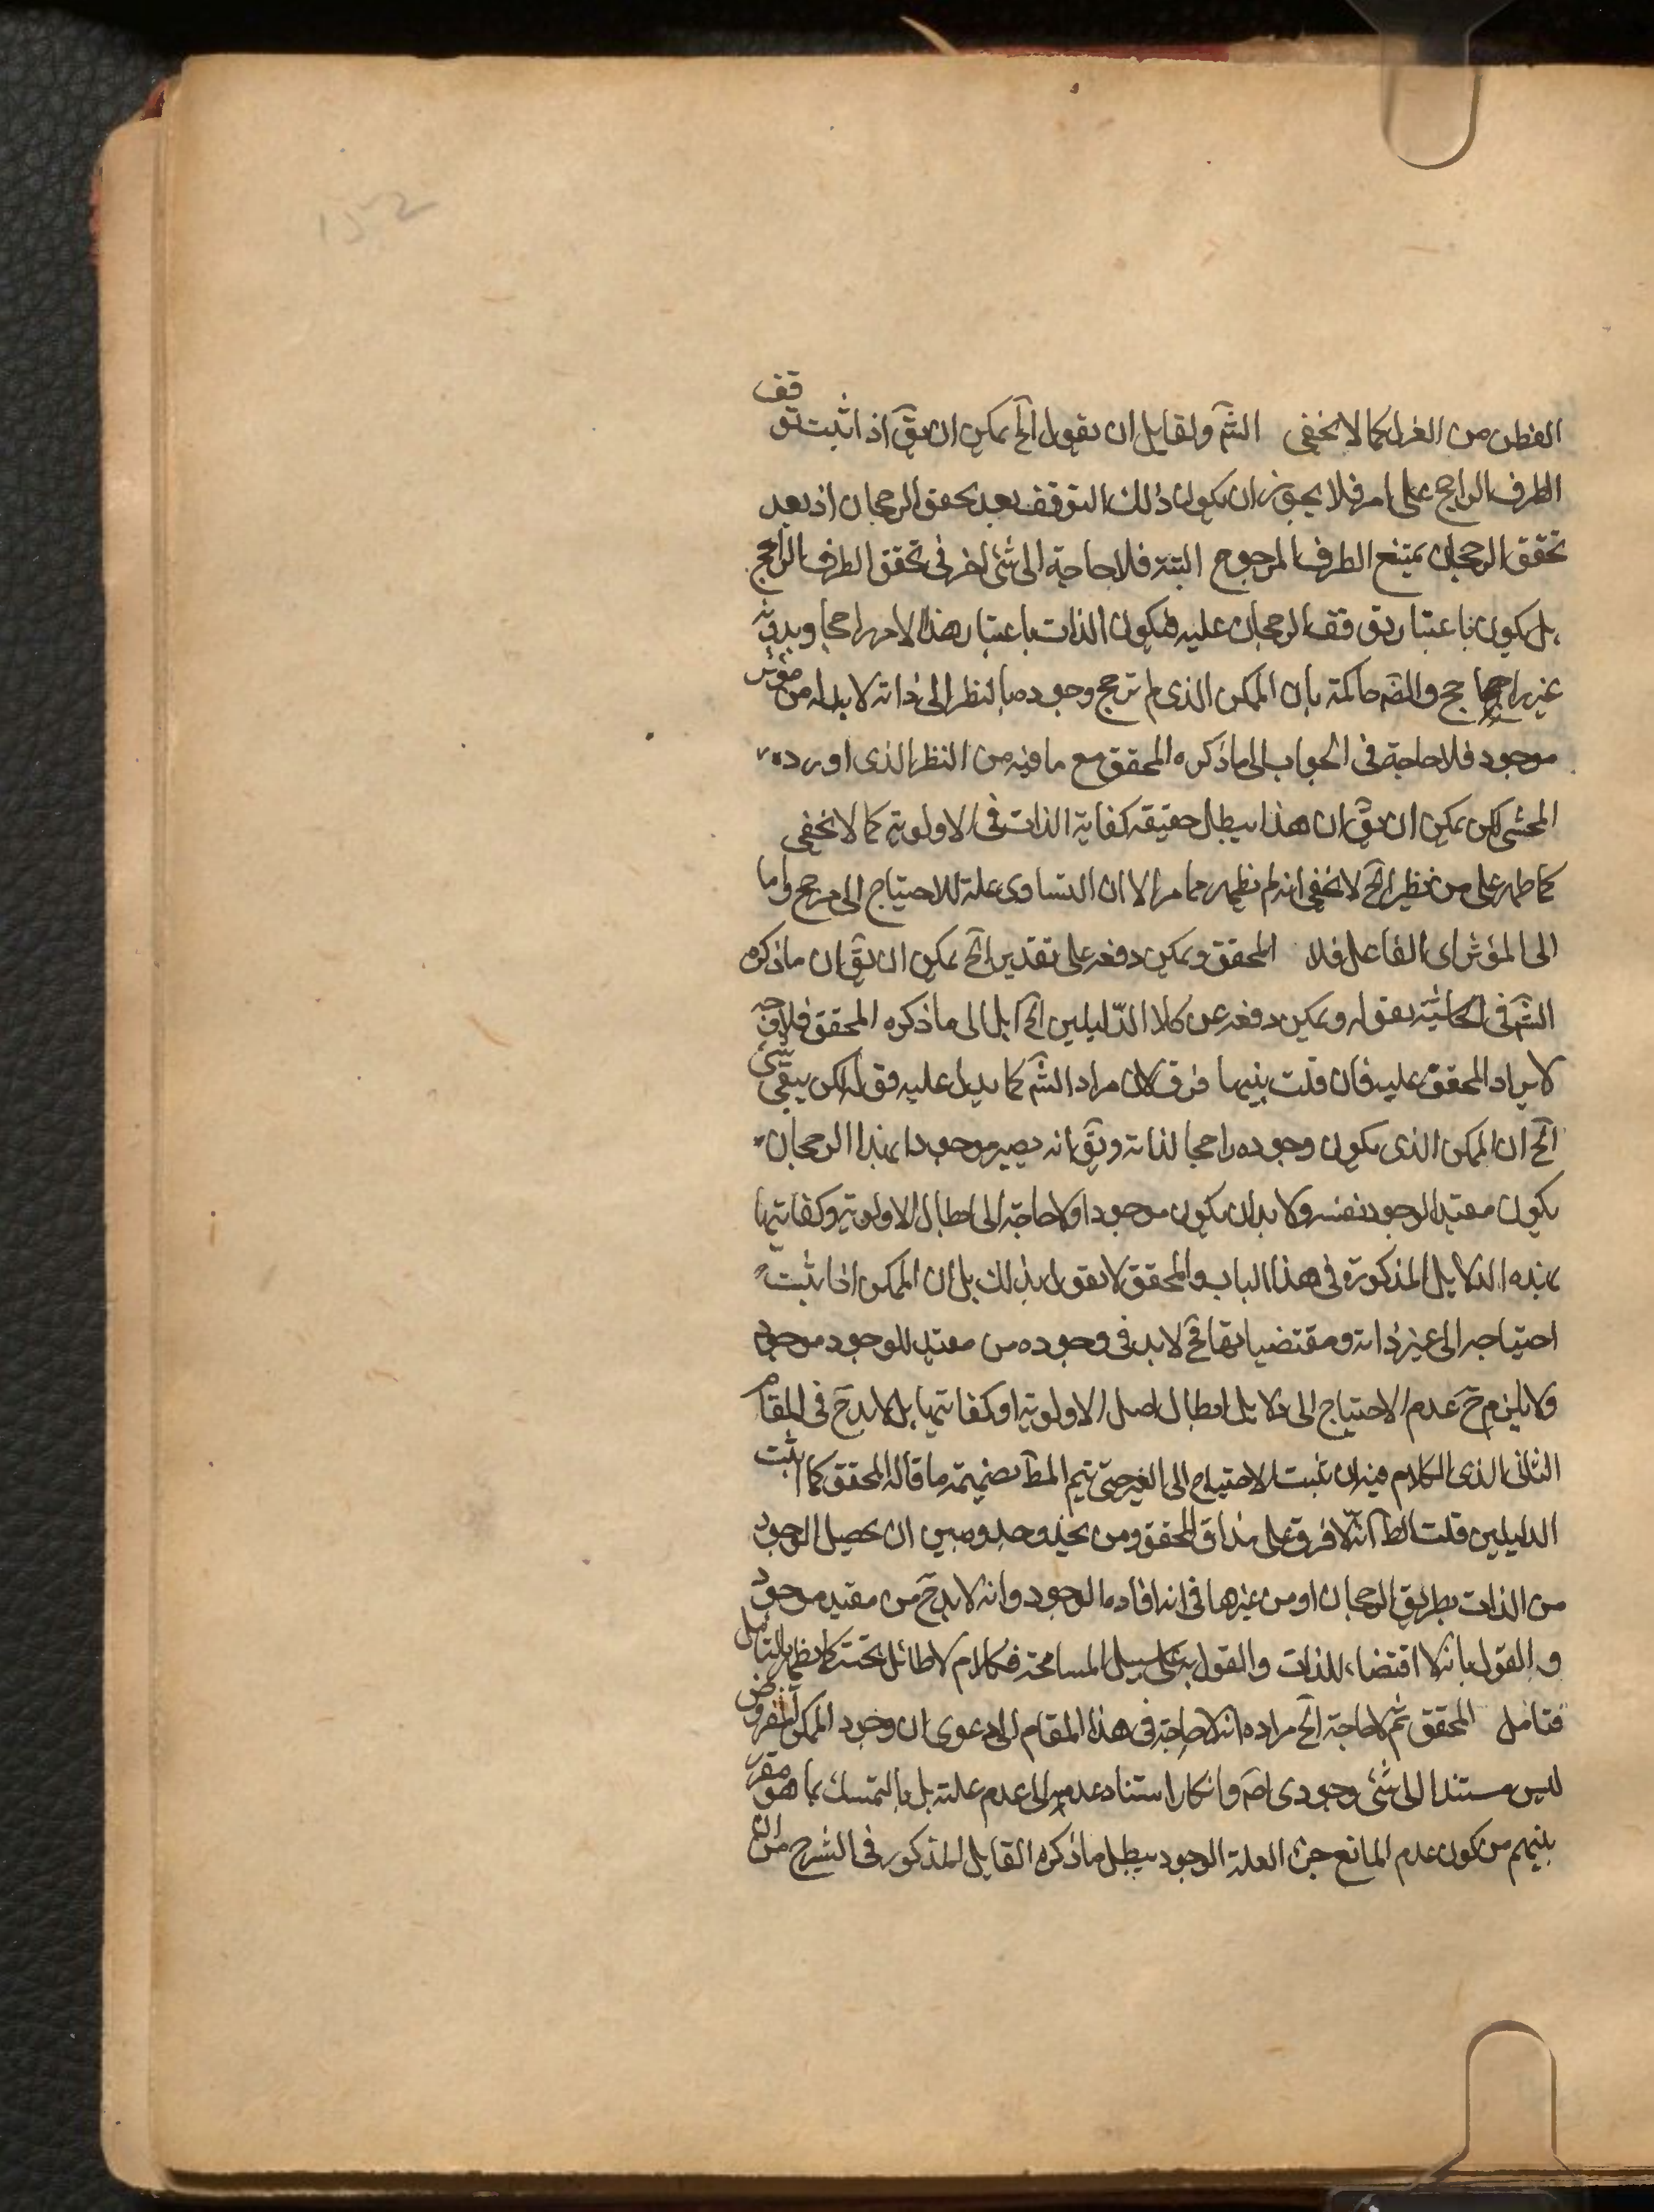 152
الفطن من الغرل كما لا يخفى الشَّم ولقايل ان يقول الخ يمكن ان يقَ اذا ثبت توقف
الطرف الراجح على امر فلا يجوز ان يكون ذلك التوقف بعد تحقق الرجحان اذ بعد
تحقق الرجحان يمتنع الطرف المرجوح البتة فلا حاجة الى شئ اخر فى تحقق الطرف الراجح
بل يكون باعتبار توقف الرجحان عليه فيكون الذات باعتبار هذا الامر راجحا وبدونه
غير راجح ح والضَه حاكمة بان الممكن الذى لم يترجح وجوده بالنظر الى ذاته لا بد له من مؤثر
موجود فلا حاجة فى الجواب الى ما ذكره المحقق مع ما فيه من النظر الذى اورده
المحشى لكن يمكن ان يقَ ان هذا يبطل حقيقة كفاية الذات فى الاولوية كما لا يخفى
كما ظهر على من نظير الخ لا يخفى انه لم يظهر مما مر الا ان التساوى علة للاحتياج الى مرجح واما
الى المؤثر اى الفاعل فلا المحقق ويمكن دفعه على تقدير الخ يمكن ان يقَ ان ما ذكره
الشَّم فى الحاشية بقوله ويمكن دفعه عن كلا الدّليلين الخ آيل الى ما ذكره المحقق فلا وجه
لايراد المحقق عليه فان قلت بينهما فرق لان مراد الشَّم كما يدل عليه قوله لكن يبقى شئ
الخ ان الممكن الذى يكون وجوده راجحا لذاته ويقَ انه يصير موجودا بهذا الرجحان
يكون مفيد الوجود نفسه ولا بد ان يكون موجودا ولا حاجة الى ابطال الاولوية وكفايتها
بهذه الدلايل المذكورة فى هذا الباب والمحقق لا يقول بذلك بل ان الممكن اذا ثبت
احتياجه الى غير ذاته ومقتضياتها فح لا بد فى وجوده من مفيد للوجود موجود
ولا يلزم ح عدم الاحتياج الى دلايل ابطال اصل الاولوية او كفايتها بل لا بد ح فى المقام
الثانى الذى الكلام فيه ان يثبت الاحتياج الى الغير حتى يتم المطَ بضميمة ما قاله المحقق كما اثبت
الدليلين قلت الظَ انه لا فرق على مذاق المحقق ومن يحذو حذوه بين ان يحصل الوجود
من الذات بطريق الرجحان او من غيرها فى انه افاد ما الوجود وانه لا بد ح من مفيد موجود
والقول بانه لا اقتضاء للذات والقول به على سبيل المسامحة فكلام لا طائل تحته كما يظهر بالتامل
فتامل المحقق ثم لا حاجة الخ مراده انه لا حاجة فى هذا المقام الى دعوى ان وجود الممكن المفروض
ليس مستندا الى شئ وجودى اصَ وانكار استناد عدمه الى عدم علته بل بالتمسك بما هو مقرر
بينهم من كون عدم المانع جزء العلة الوجود يبطل ما ذكره القايل المذكور فى الشرح من ان